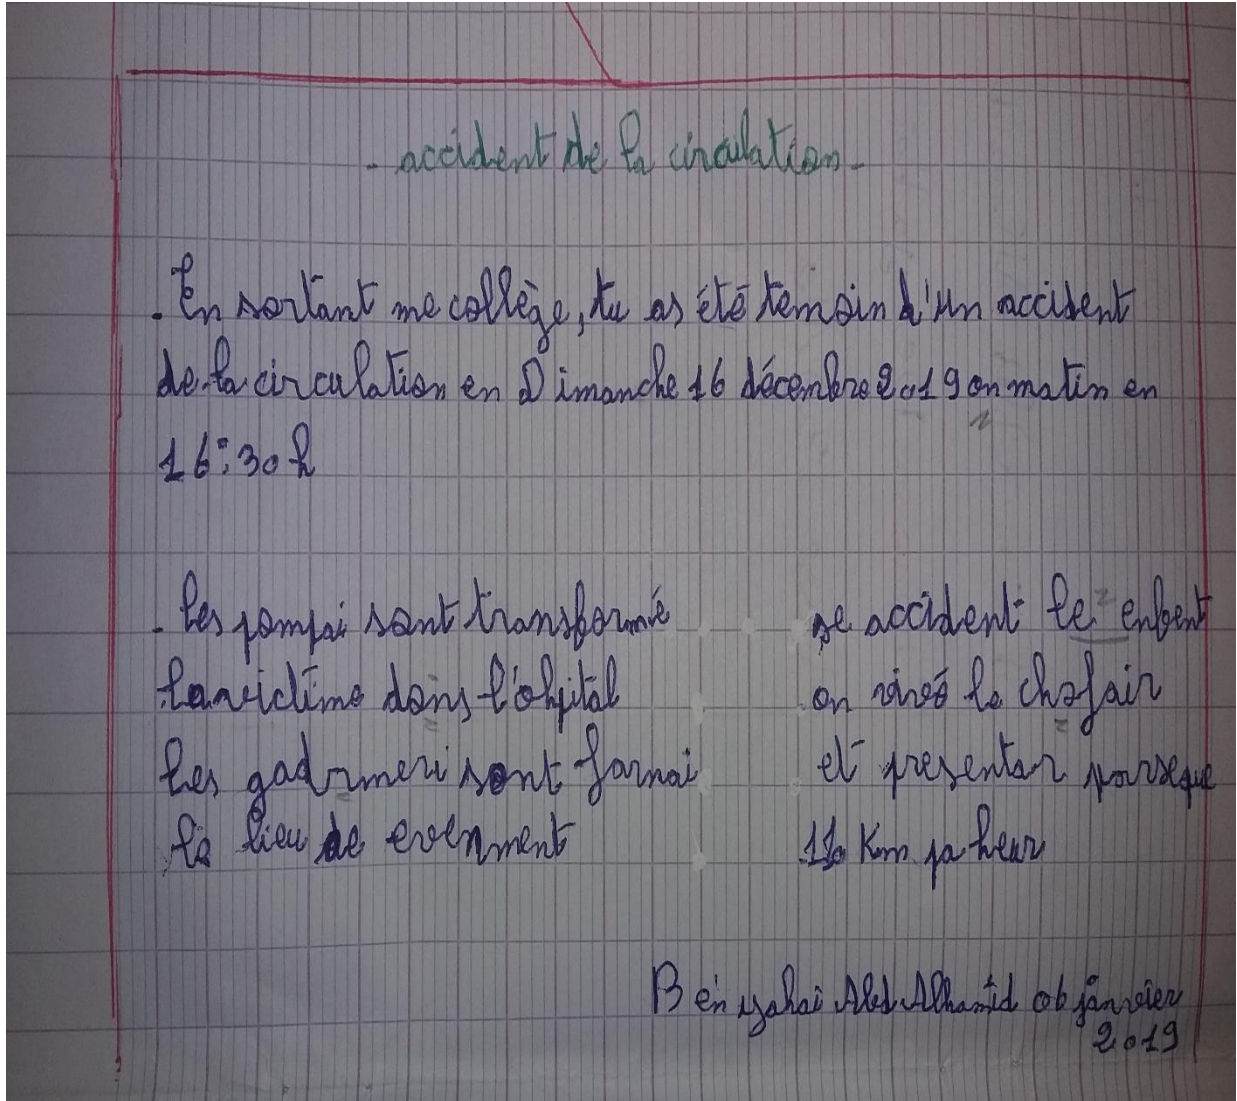 - accident de la circulation -
. En sortant me collège, tu as été temoin d'un accident
de la circulation en Dimanche 16 décembre 2019 on matin en
16:30h
. Les pompai sont transformé
la victime dans l'ohpital
Les gadrmeri sont farmai
le lieu de evenment
se accident le enfent
on virée le chofair
et presentar parseque
110 Km pa heur
Ben yahai Abd Alhamid 06 janvier
2019